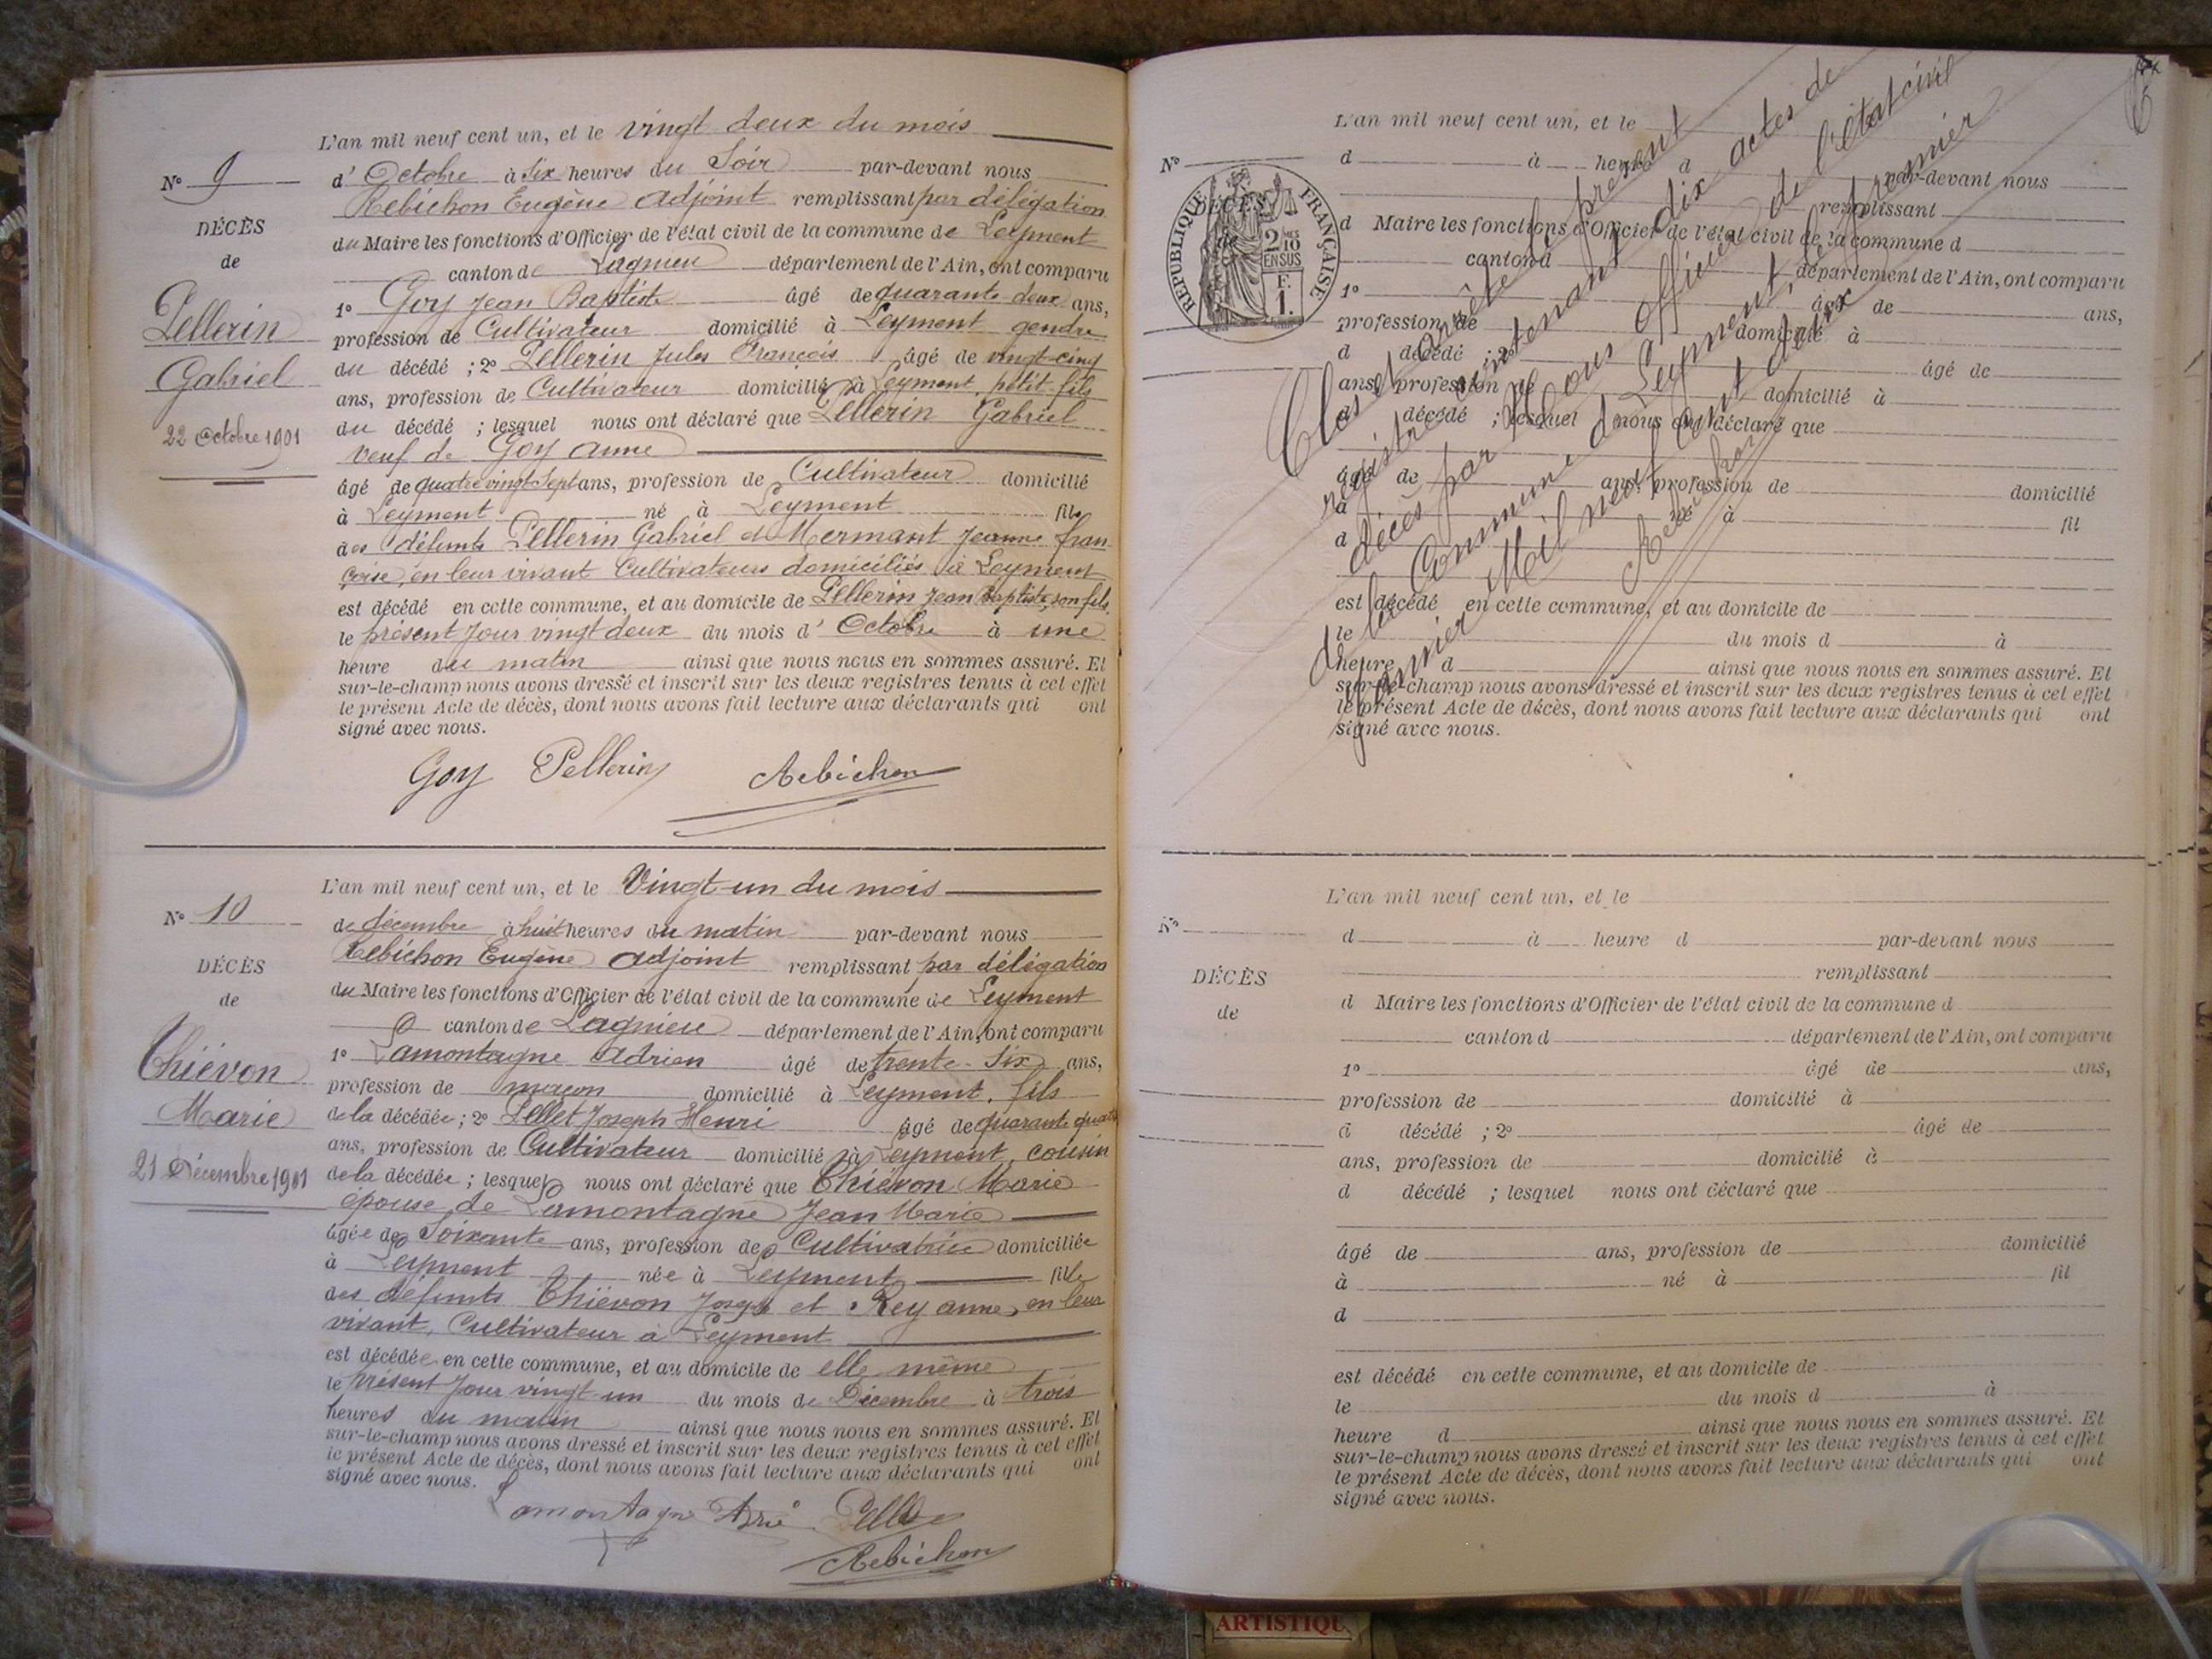 L'an mil neuf cent un, et le vingt deux du mois
N° 9
d'Octobre à six heures du Soir par-devant nous
Rebichon Eugène adjoint remplissant par délégation
DÉCÈS
du Maire les fonctions d'Officier de l'état civil de la commune de Leyment
de
canton de Lagnieu département de l'Ain, ont comparu
Pellerin
1° Goy Jean Baptiste âgé de quarante-deux ans,
profession de Cultivateur domicilié à Leyment gendre
Gabriel
du décédé ; 2° Pellerin Jules François âgé de vingt-cinq
ans, profession de Cultivateur domicilié à Leyment, petit-fils
22 Octobre 1901
du décédé ; lesquel nous ont déclaré que Pellerin Gabriel
veuf de Goy Anne
âgé de quatre vingt Sept ans, profession de Cultivateur domicilié
à Leyment né à Leyment fils
des défunts Pellerin Gabriel et Mermant Jeanne fran
çoise, en leur vivant Cultivateurs domiciliés à Leyment
est décédé en cette commune, et au domicile de Pellerin Jean Baptiste, son fils,
le présent jour vingt deux du mois d'Octobre à une
heure du matin ainsi que nous nous en sommes assuré. Et
sur-le-champ nous avons dressé et inscrit sur les deux registres tenus à cet effet
le présent Acte de décès, dont nous avons fait lecture aux déclarants qui ont
signé avec nous.
Goy Pellerin Rebichon
L'an mil neuf cent un, et le Vingt-un du mois
N° 10
de décembre à huit heures du matin par-devant nous
Rebichon Eugène adjoint remplissant par délégation
DÉCÈS
du Maire les fonctions d'Officier de l'état civil de la commune de Leyment
de
canton de Lagnieu département de l'Ain, ont comparu
Thiévon
1° Lamontagne Adrien âgé de trente-Six ans,
profession de maçon domicilié à Leyment, fils
Marie
de la décédée ; 2° Pellet Joseph Henri âgé de quarante quatre
ans, profession de Cultivateur domicilié à Leyment, cousin
21 Décembre 1901
de la décédée ; lesquels nous ont déclaré que Thiévon Marie
épouse de Lamontagne Jean Marie
âgée de Soixante ans, profession de Cultivatrice domiciliée
à Leyment née à Leyment fille
des défunts Thiévon Joseph et Rey anne, en leur
vivant, Cultivateur à Leyment
est décédée en cette commune, et au domicile de elle même
le présent Jour vingt-un du mois de Décembre à trois
heures du matin ainsi que nous nous en sommes assuré. Et
sur-le-champ nous avons dressé et inscrit sur les deux registres tenus à cet effet
le présent Acte de décès, dont nous avons fait lecture aux déclarants qui ont
signé avec nous.
Lamontagne Adri Pellet
Rebichon
L'an mil neuf cent un, et le
N°
d à heure d par-devant nous
remplissant
DÉCÈS
de
RÉPUBLIQUE FRANÇAISE
2 MES 10
EN SUS
F.
1.
d Maire les fonctions d'Officier de l'état civil de la commune d
canton d département de l'Ain, ont comparu
1° âgé de ans,
profession de domicilié à
d décédé ; 2° âgé de
ans, profession de domicilié à
d décédé ; lesquel nous ont déclaré que
âgé de ans, profession de domicilié
à né à fil
d
est décédé en cette commune, et au domicile de
le du mois d à
heure d ainsi que nous nous en sommes assuré. Et
sur-le-champ nous avons dressé et inscrit sur les deux registres tenus à cet effet
le présent Acte de décès, dont nous avons fait lecture aux déclarants qui ont
signé avec nous.
Clos et arrêté le présent
registre contenant dix actes de
décès par Nous officier de l'état civil
de la Commune de Leyment, le premier
janvier Mil neuf cent deux
Rebichon
L'an mil neuf cent un, et le
N°
d à heure d par-devant nous
remplissant
DÉCÈS
d Maire les fonctions d'Officier de l'état civil de la commune d
de
canton d département de l'Ain, ont comparu
1° âgé de ans,
profession de domicilié à
d décédé ; 2° âgé de
ans, profession de domicilié à
d décédé ; lesquel nous ont déclaré que
âgé de ans, profession de domicilié
à né à fil
d
est décédé en cette commune, et au domicile de
le du mois d à
heure d ainsi que nous nous en sommes assuré. Et
sur-le-champ nous avons dressé et inscrit sur les deux registres tenus à cet effet
le présent Acte de décès, dont nous avons fait lecture aux déclarants qui ont
signé avec nous.
ARTISTIQU